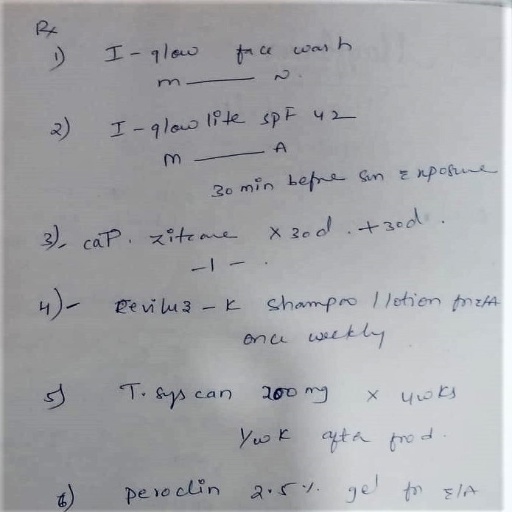 Rx
1) I-glow face wash
m —— N.
2) I-glow lite spf 42
m —— A
30 min before sun exposure
3)- caP. zitcare x 30d. +30d.
-1-.
4)- K shampoo / lotion for E/A
once weekly
5) T. syscan 200mg x 4wks
1/wk after food.
6) peroclin 2.5% gel for E/A